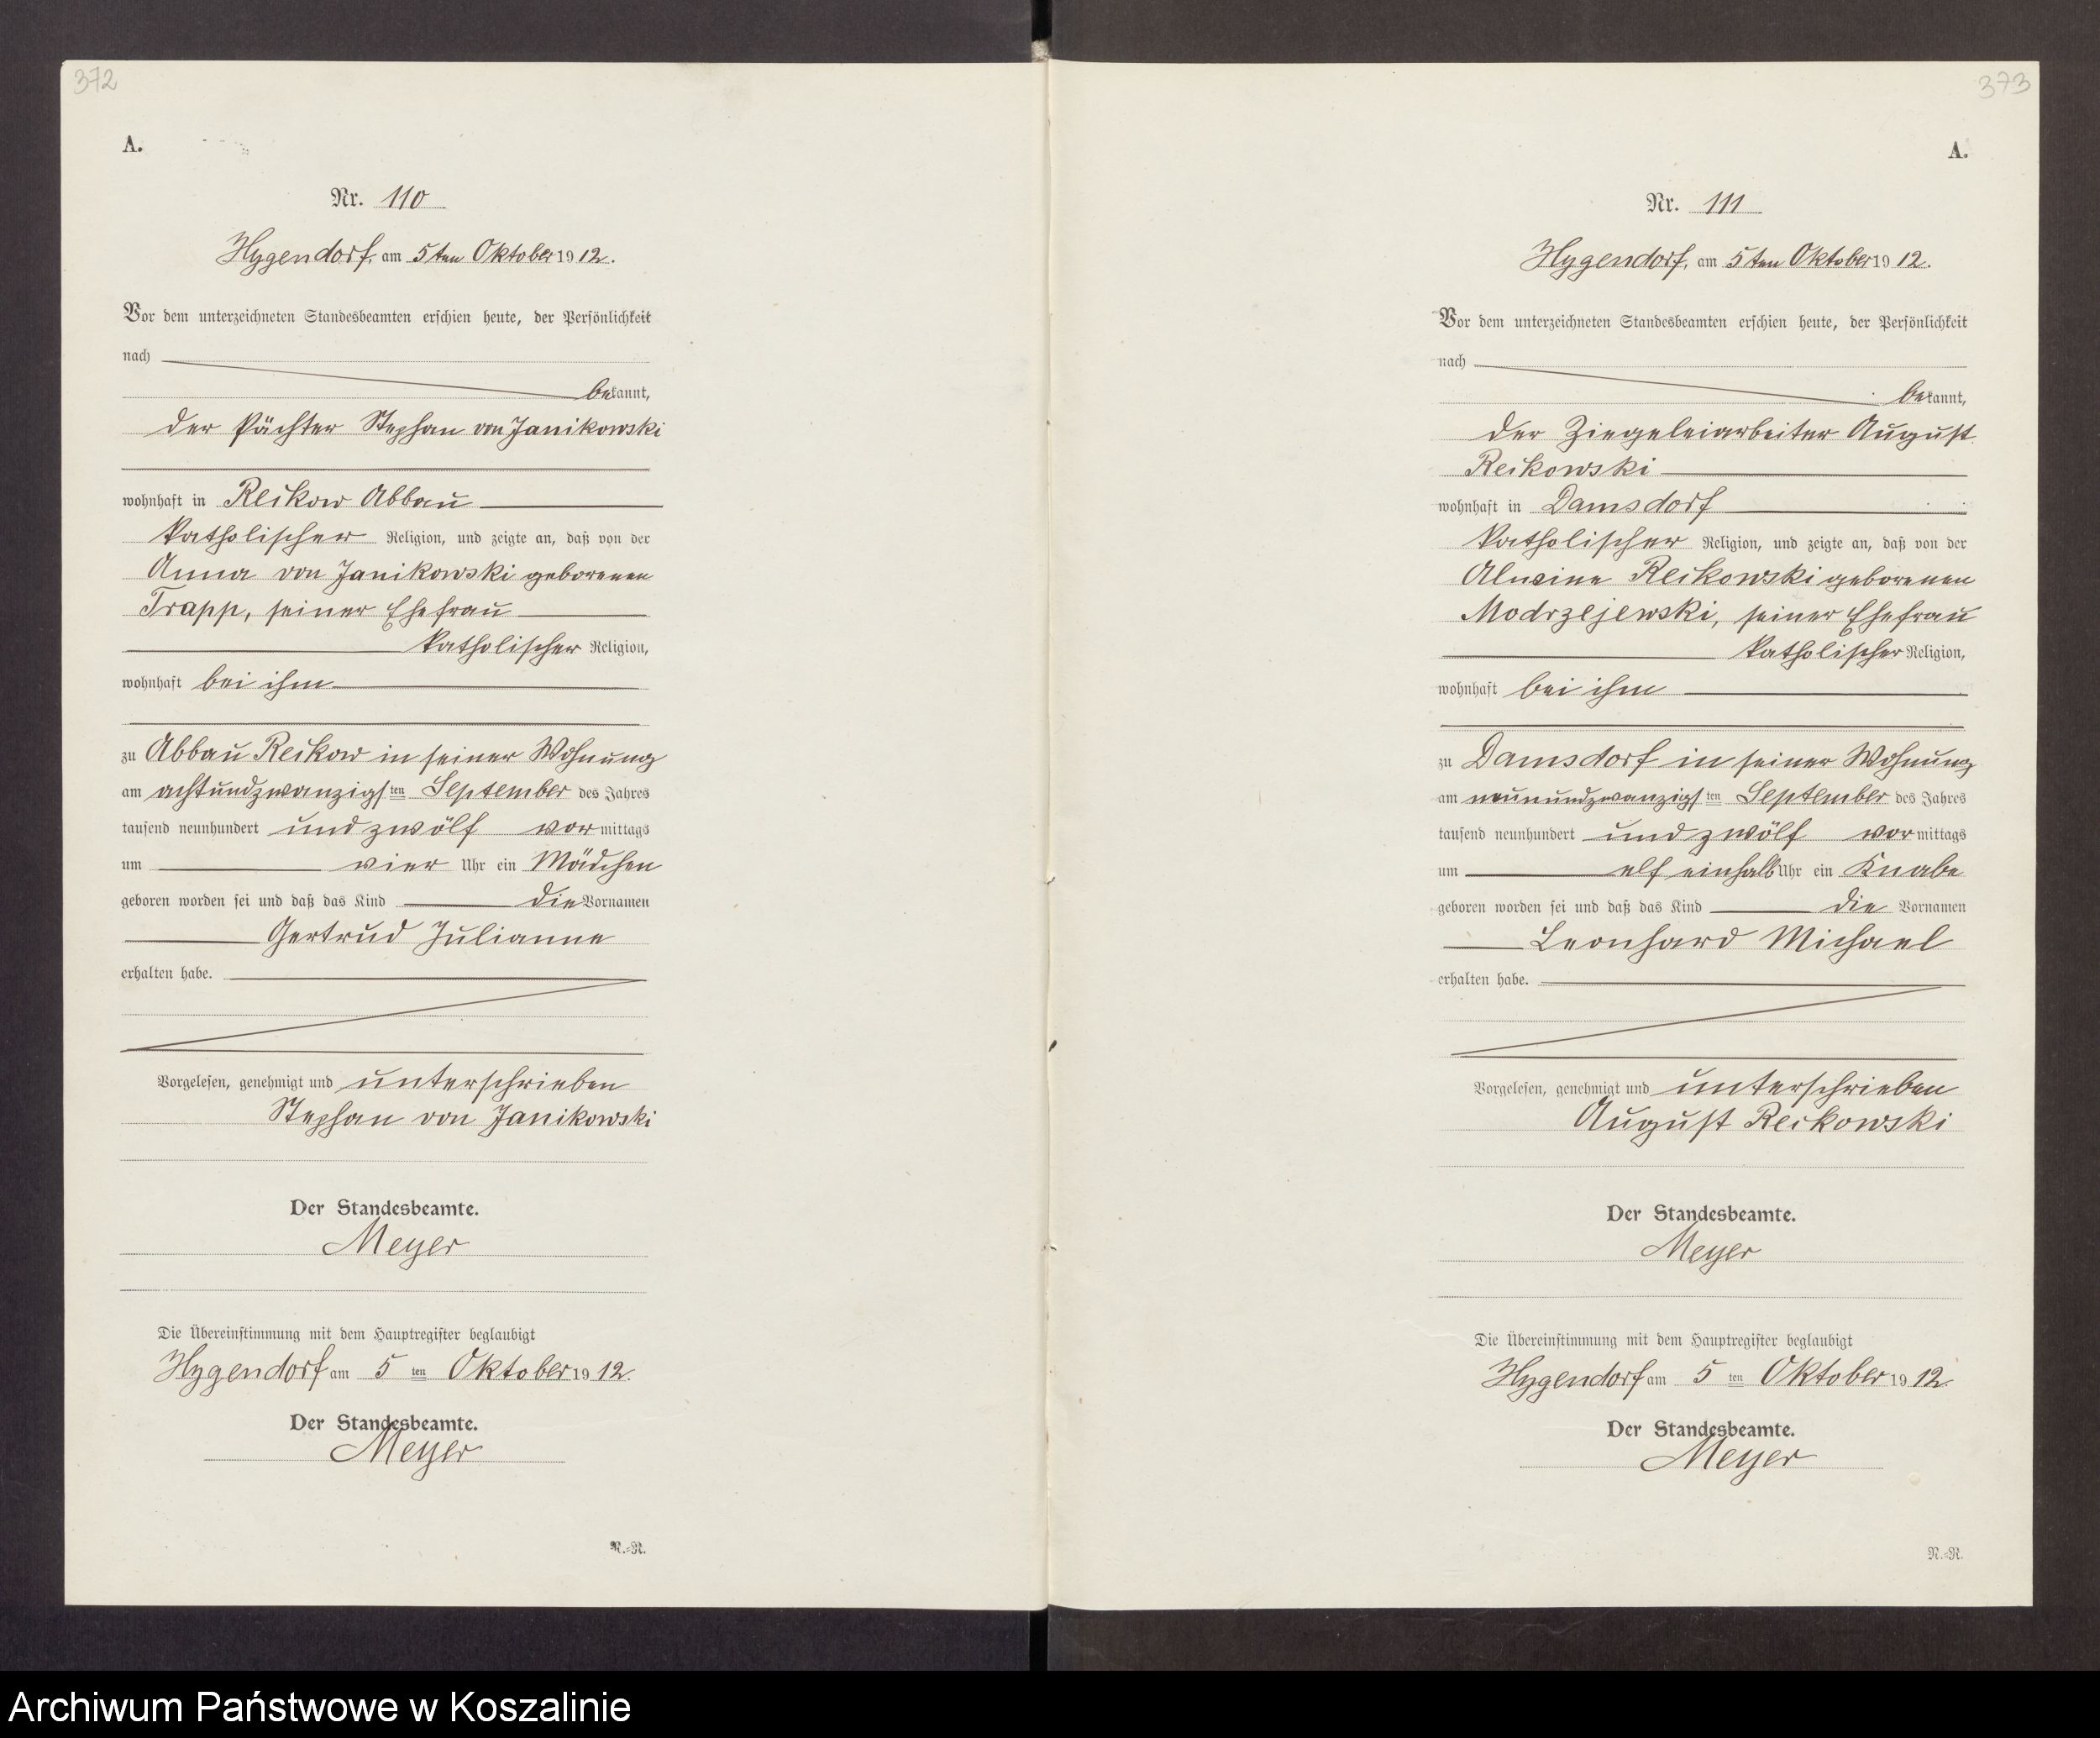 372
A.
Nr. 110
Hygendorf, am 5ten Oktober 1912.
Vor dem unterzeichneten Standesbeamten erschien heute, der Persönlichkeit
nach
bekannt,
der Pächter Stephan von Janikowski
wohnhaft in Reikow Abbau
katholischer Religion, und zeigte an, daß von der
Anna von Janikowski geborenen
Trapp, seiner Ehefrau
katholischer Religion,
wohnhaft bei ihm
zu Abbau Reikow in seiner Wohnung
am achtundzwanzigsten September des Jahres
tausend neunhundert und zwölf vormittags
um vier Uhr ein Mädchen
geboren worden sei und daß das Kind die Vornamen
Gertrud Julianne
erhalten habe.
Vorgelesen, genehmigt und unterschrieben
Stephan von Janikowski
Der Standesbeamte.
Meyer
Die Übereinstimmung mit dem Hauptregister beglaubigt
Hygendorf am 5 ten Oktober 1912.
Der Standesbeamte.
Meyer
N.-R.
373
A.
Nr. 111
Hygendorf, am 5ten Oktober 1912.
Vor dem unterzeichneten Standesbeamten erschien heute, der Persönlichkeit
nach
bekannt,
der Ziegeleiarbeiter August
Reikowski
wohnhaft in Damsdorf
katholischer Religion, und zeigte an, daß von der
Alwine Reikowski geborenen
Modrzejewski, seiner Ehefrau
katholischer Religion,
wohnhaft bei ihm
zu Damsdorf in seiner Wohnung
am neunundzwanzigsten September des Jahres
tausend neunhundert und zwölf vormittags
um elf einhalb Uhr ein Knabe
geboren worden sei und daß das Kind die Vornamen
Leonhard Michael
erhalten habe.
Vorgelesen, genehmigt und unterschrieben
August Reikowski
Der Standesbeamte.
Meyer
Die Übereinstimmung mit dem Hauptregister beglaubigt
Hygendorf am 5 ten Oktober 1912.
Der Standesbeamte.
Meyer
N.-R.
Archiwum Państwowe w Koszalinie